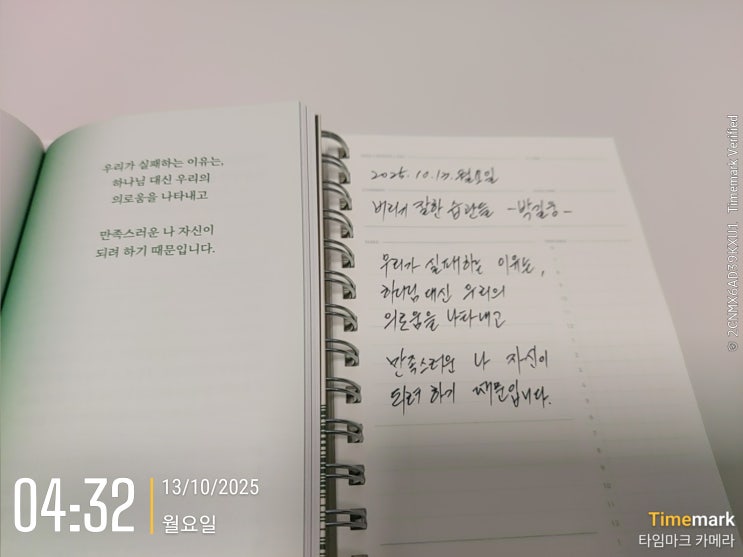 우리가 실패하는 이유는,
하나님 대신 우리의
의로움을 나타내고
만족스러운 나 자신이
되려 하기 때문입니다.
2025. 10. 13. 월요일
버리기 잘한 습관들 -박길웅-
우리가 실패하는 이유는,
하나님 대신 우리의
의로움을 나타내고
만족스러운 나 자신이
되려 하기 때문입니다.
04:32
13/10/2025
월요일
Timemark
타임마크 카메라
© 2CNMX6AD39KXU1 Timemark Verified